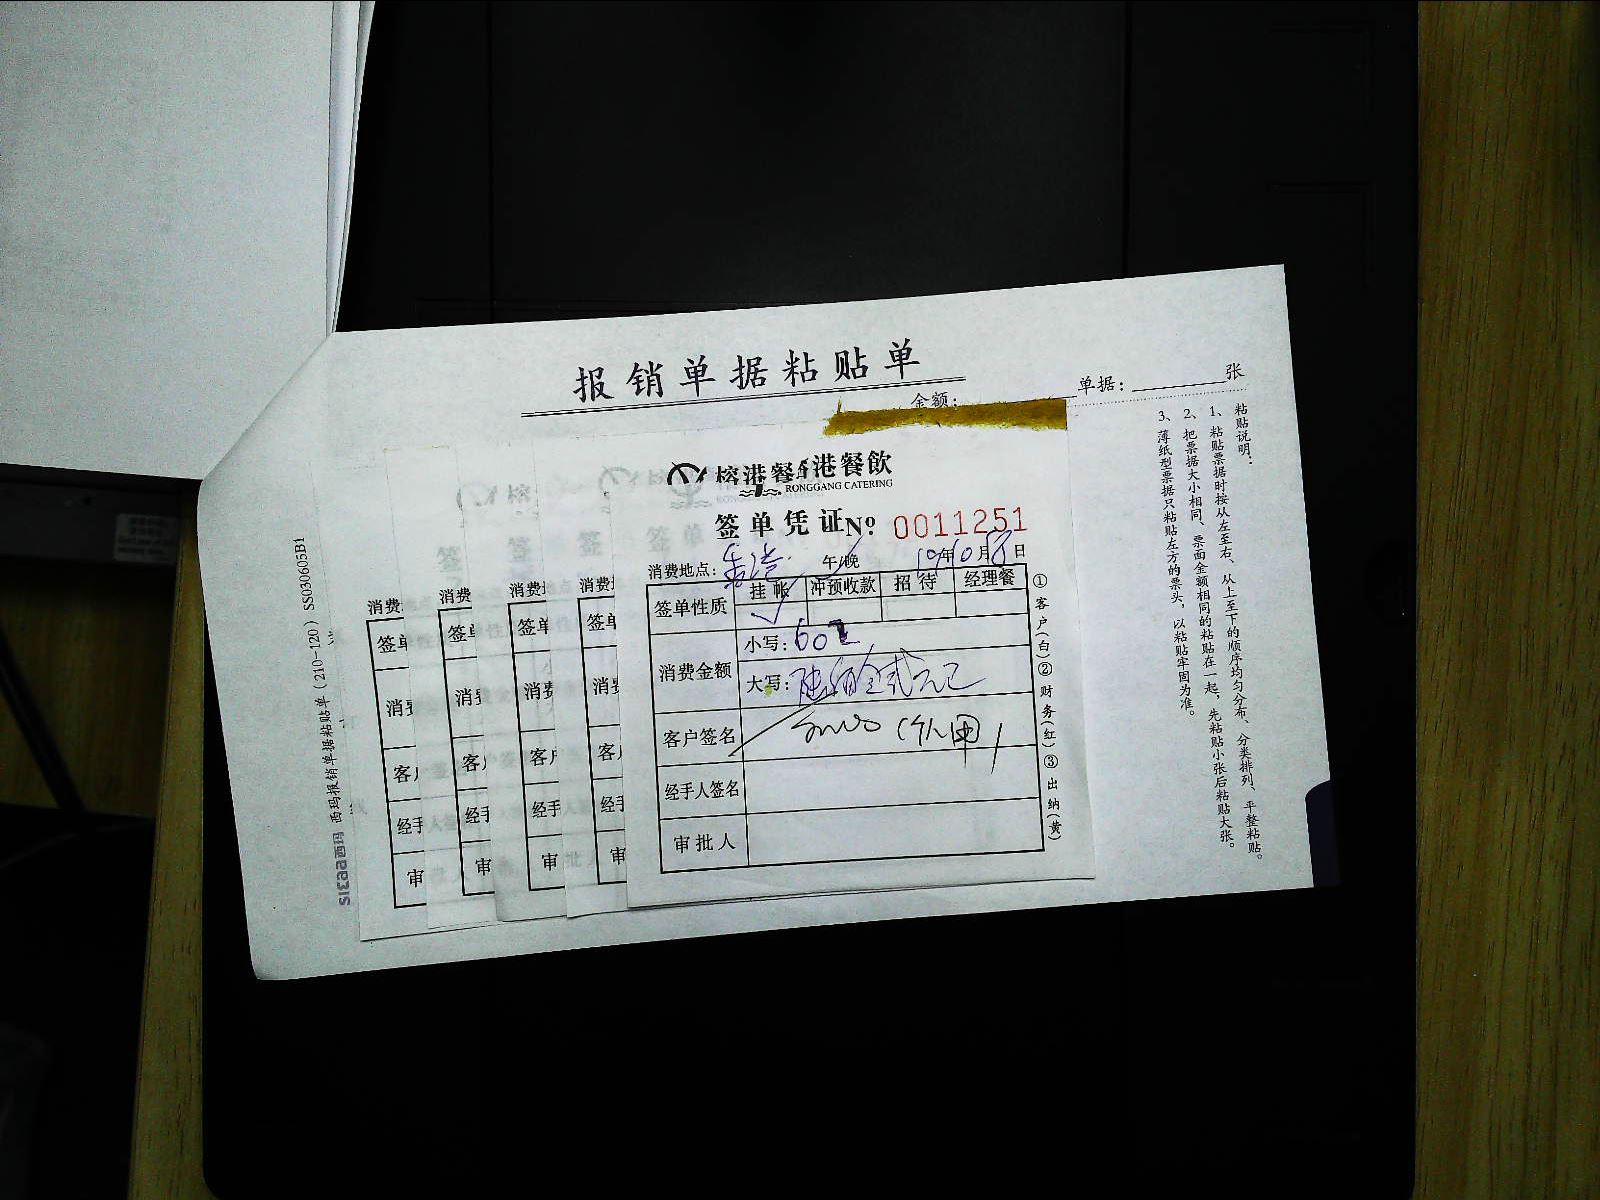 报销单据粘贴单
金额: 单据: 张
粘贴说明:
1、粘贴票据时按从左至右、从上至下的顺序均匀分布、分类排列、平整粘贴。
2、把票据大小相同、票面金额相同的粘贴在一起,先粘贴小张后粘贴大张。
3、薄纸型票据只粘贴左方的票头,以粘贴牢固为准。
西玛 西玛报销单据粘贴单(210-120) SS030605B1
榕港餐 港餐飲
RONGGANG CATERING
签单凭证 Nº: 0011251
消费地点: 午/晚 19年10月 日
签单性质 挂帐 冲预收款 招待 经理餐
消费金额 小写: 602
大写: 陆佰零贰元
客户签名
经手人签名
审批人
①客户(白)②财务(红)③出纳(黄)
消费 消费 消费 消费
签单 签单 签单 签单
消费 消费 消费 消费
客户 客户 客户 客户
经手 经手 经手 经手
审 审 审 审